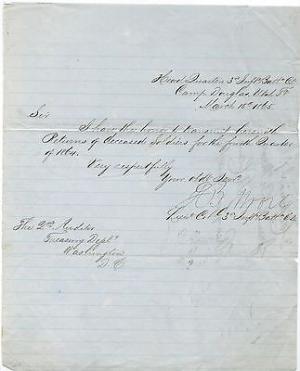 Head Quarters 3d Infty Batt Cal
Camp Douglas, Utah Ty
March 18th 1865
Sir
I have the honor to transmit herewith
Returns of Deceased Soldiers for the fourth Quarter
of 1864.
Very respectfully
Your Obt Servt
3d Infty Batt Cal
The 2nd Auditor
Treasury Dept
Washington
D C